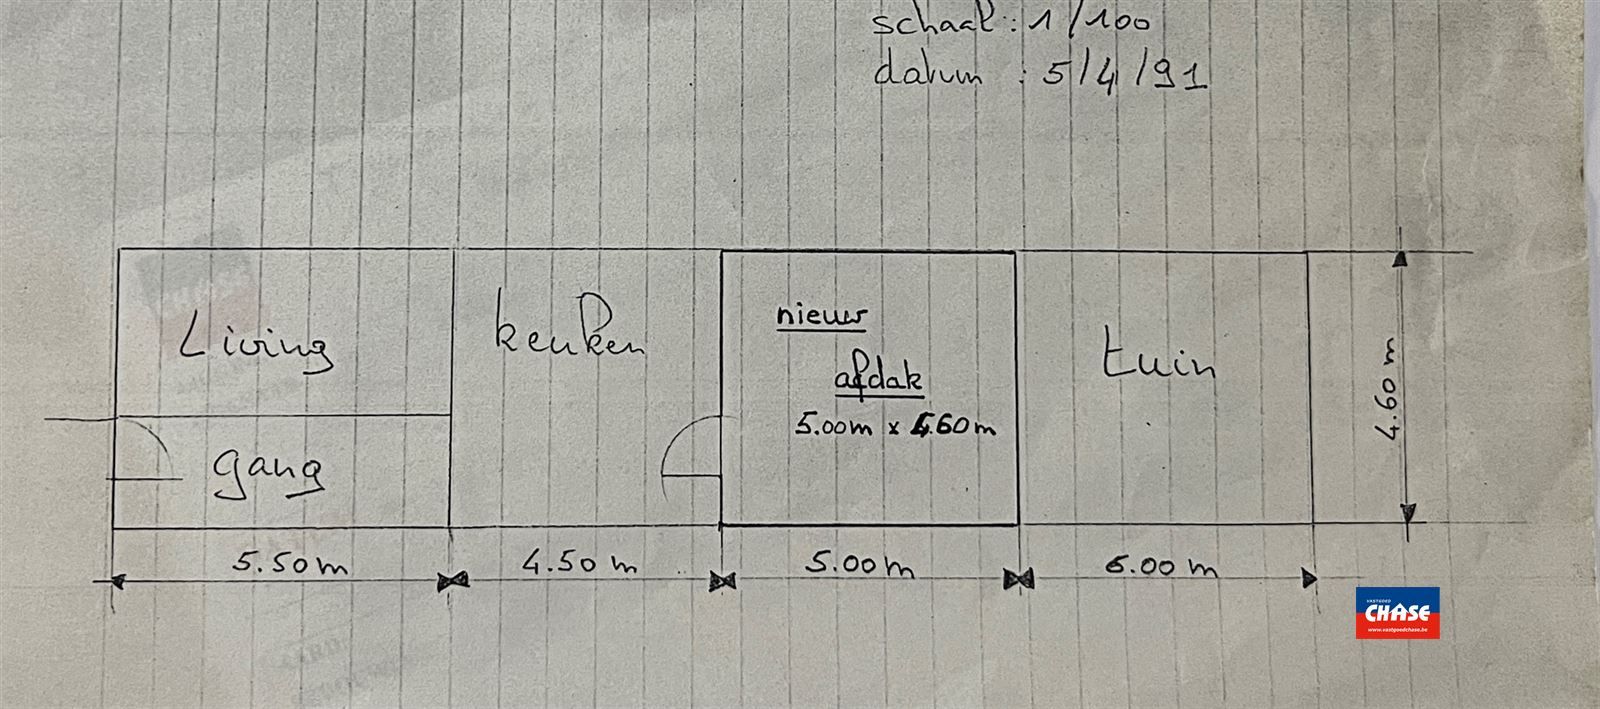 schaal : 1/100
datum : 5/4/91
Living
keuken
nieuw
afdak
5.00m x 4.60m
tuin
gang
4.60 m
5.50m
4.50 m
5.00m
6.00 m
VASTGOED
CHASE
www.vastgoedchase.be